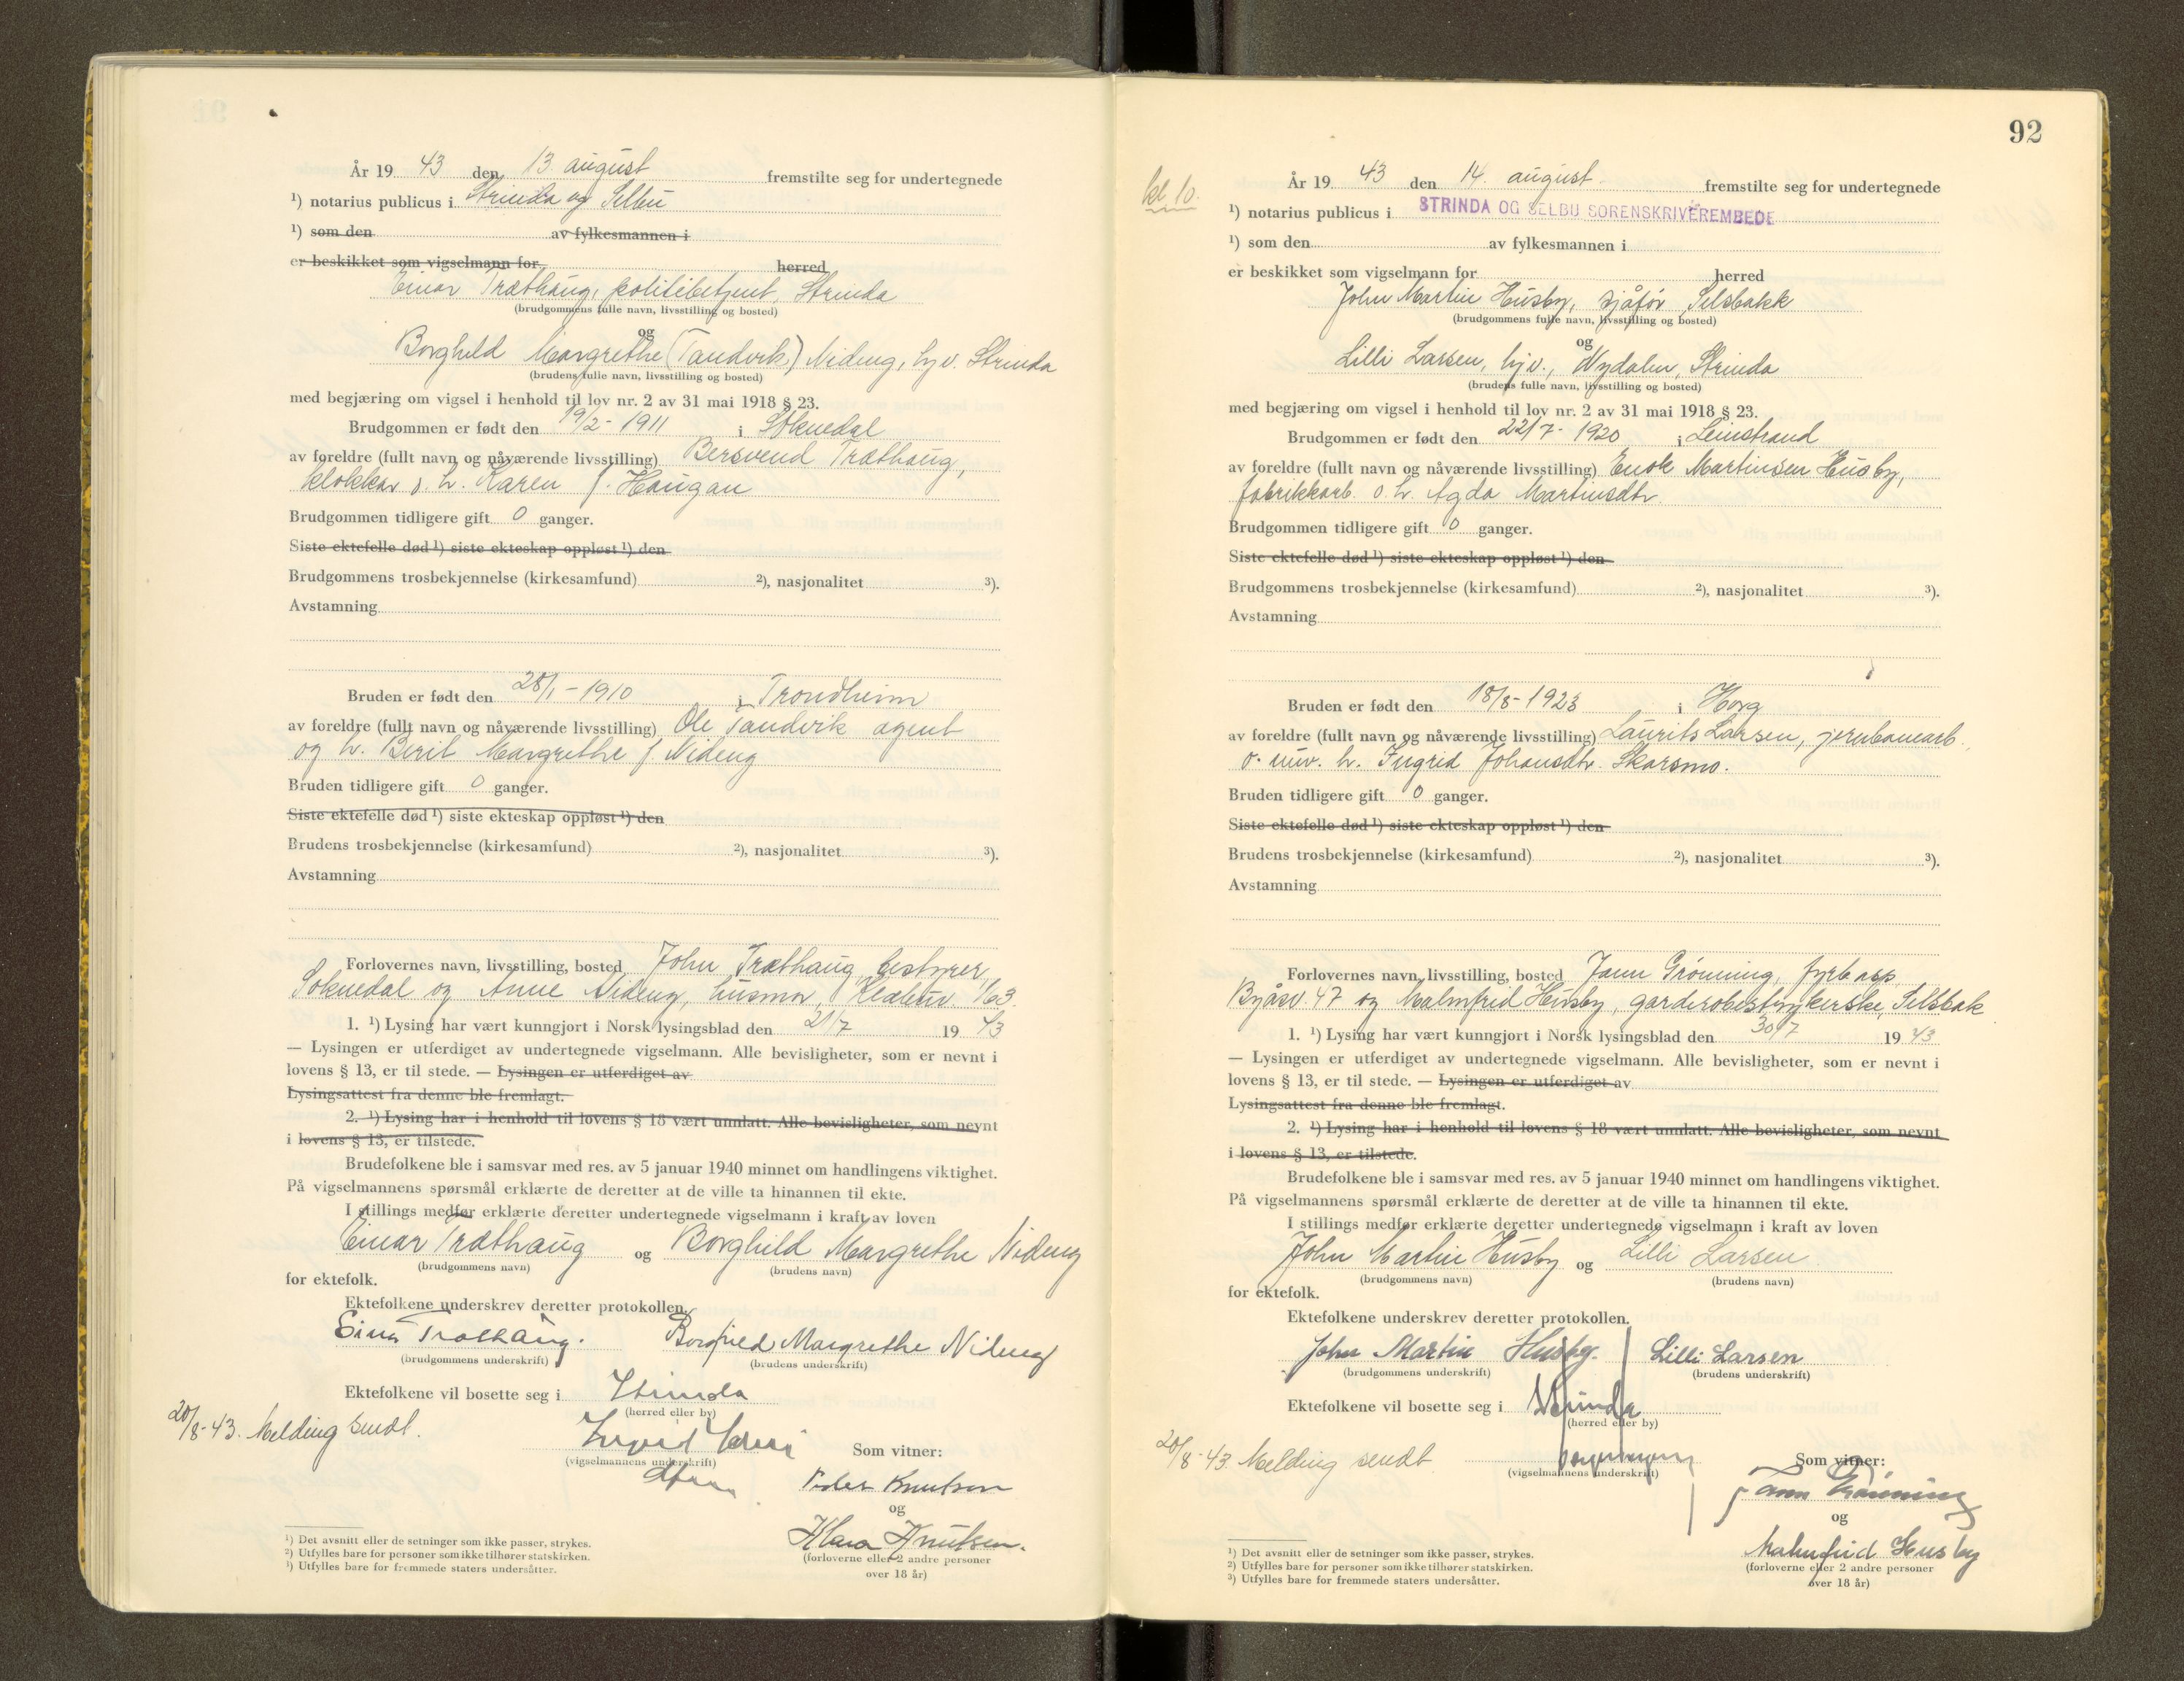 År 19 43 den 13. august fremstilte seg for undertegnede
¹) notarius publicus i Strinda og Selbu
¹) som den av fylkesmannen i
er beskikket som vigselmann for herred
Einar Træthaug, politibetjent, Strinda
(brudgommens fulle navn, livsstilling og bosted)
og
Borghild Margrethe (Tandvik) Nideng, hjv. Strinda
(brudens fulle navn, livsstilling og bosted)
med begjæring om vigsel i henhold til lov nr. 2 av 31 mai 1918 § 23.
Brudgommen er født den 19/2 - 1911 i Soknedal
av foreldre (fullt navn og nåværende livsstilling) Bersvend Træthaug,
klokker o. h. Karen f. Haugan
Brudgommen tidligere gift 0 ganger.
Siste ektefelle død ¹) siste ekteskap oppløst ¹) den
Brudgommens trosbekjennelse (kirkesamfund) ²), nasjonalitet ³).
Avstamning
Bruden er født den 28/1 - 1910 i Trondheim
av foreldre (fullt navn og nåværende livsstilling) Ole Tandvik agent
og h. Berit Margrethe f. Nideng
Bruden tidligere gift 0 ganger.
Siste ektefelle død ¹) siste ekteskap oppløst ¹) den
Brudens trosbekjennelse (kirkesamfund) ²), nasjonalitet ³).
Avstamning
Forlovernes navn, livsstilling, bosted John Træthaug, bestyrer,
Soknedal og Anne Nideng, husmor, 163
1. ¹) Lysing har vært kunngjort i Norsk lysingsblad den 21/7 19 43
— Lysingen er utferdiget av undertegnede vigselmann. Alle bevisligheter, som er nevnt i
lovens § 13, er til stede. — Lysingen er utferdiget av
Lysingsattest fra denne ble fremlagt.
2. ¹) Lysing har i henhold til lovens § 18 vært unnlatt. Alle bevisligheter, som nevnt
i lovens § 13, er tilstede.
Brudefolkene ble i samsvar med res. av 5 januar 1940 minnet om handlingens viktighet.
På vigselmannens spørsmål erklærte de deretter at de ville ta hinannen til ekte.
I stillings medfør erklærte deretter undertegnede vigselmann i kraft av loven
Einar Træthaug og Borghild Margrethe Nideng
(brudgommens navn) (brudens navn)
for ektefolk.
Ektefolkene underskrev deretter protokollen.
Einar Træthaug. Borghild Margrethe Nideng
(brudgommens underskrift) (brudens underskrift)
Ektefolkene vil bosette seg i Strinda
(herred eller by)
20/8-43. Melding sendt.
(vigselmannens underskrift) Som vitner:
Peder Knutsen
og
Klara Knutsen.
(forloverne eller 2 andre personer
over 18 år)
¹) Det avsnitt eller de setninger som ikke passer, strykes.
²) Utfylles bare for personer som ikke tilhører statskirken.
³) Utfylles bare for fremmede staters undersåtter.
92
kl. 10.
År 19 43 den 14. august. fremstilte seg for undertegnede
¹) notarius publicus i STRINDA OG SELBU SORENSKRIVEREMBEDE
¹) som den av fylkesmannen i
er beskikket som vigselmann for herred
John Martin Husby, sjåfør, Selsbakk
(brudgommens fulle navn, livsstilling og bosted)
og
Lilli Larsen, hjv., Nydalen, Strinda
(brudens fulle navn, livsstilling og bosted)
med begjæring om vigsel i henhold til lov nr. 2 av 31 mai 1918 § 23.
Brudgommen er født den 22/7 - 1920 i Leinstrand
av foreldre (fullt navn og nåværende livsstilling) Enok Martinsen Husby,
fabrikkarb. o. h. Agda Martinsdtr.
Brudgommen tidligere gift 0 ganger.
Siste ektefelle død ¹) siste ekteskap oppløst ¹) den
Brudgommens trosbekjennelse (kirkesamfund) ²), nasjonalitet ³).
Avstamning
Bruden er født den 18/8 - 1923 i Horg
av foreldre (fullt navn og nåværende livsstilling) Laurits Larsen, jernbanearb.,
o. h. Ingrid Johansdtr. Skarsmo.
Bruden tidligere gift 0 ganger.
Siste ektefelle død ¹) siste ekteskap oppløst ¹) den
Brudens trosbekjennelse (kirkesamfund) ²), nasjonalitet ³).
Avstamning
Forlovernes navn, livsstilling, bosted Jann Grønning, fyrb.asp.
Byåsv. 47 og Malmfrid Husby, garderobestrykerske, Selsbak
1. ¹) Lysing har vært kunngjort i Norsk lysingsblad den 30/7 19 43
— Lysingen er utferdiget av undertegnede vigselmann. Alle bevisligheter, som er nevnt i
lovens § 13, er til stede. — Lysingen er utferdiget av
Lysingsattest fra denne ble fremlagt.
2. ¹) Lysing har i henhold til lovens § 18 vært unnlatt. Alle bevisligheter, som nevnt
i lovens § 13, er tilstede.
Brudefolkene ble i samsvar med res. av 5 januar 1940 minnet om handlingens viktighet.
På vigselmannens spørsmål erklærte de deretter at de ville ta hinannen til ekte.
I stillings medfør erklærte deretter undertegnede vigselmann i kraft av loven
John Martin Husby og Lilli Larsen
(brudgommens navn) (brudens navn)
for ektefolk.
Ektefolkene underskrev deretter protokollen.
John Martin Husby. Lilli Larsen
(brudgommens underskrift) (brudens underskrift)
Ektefolkene vil bosette seg i Strinda
(herred eller by)
20/8-43. Melding sendt
(vigselmannens underskrift) Som vitner:
Jann Grønning
og
Malmfrid Husby
(forloverne eller 2 andre personer
over 18 år)
¹) Det avsnitt eller de setninger som ikke passer, strykes.
²) Utfylles bare for personer som ikke tilhører statskirken.
³) Utfylles bare for fremmede staters undersåtter.